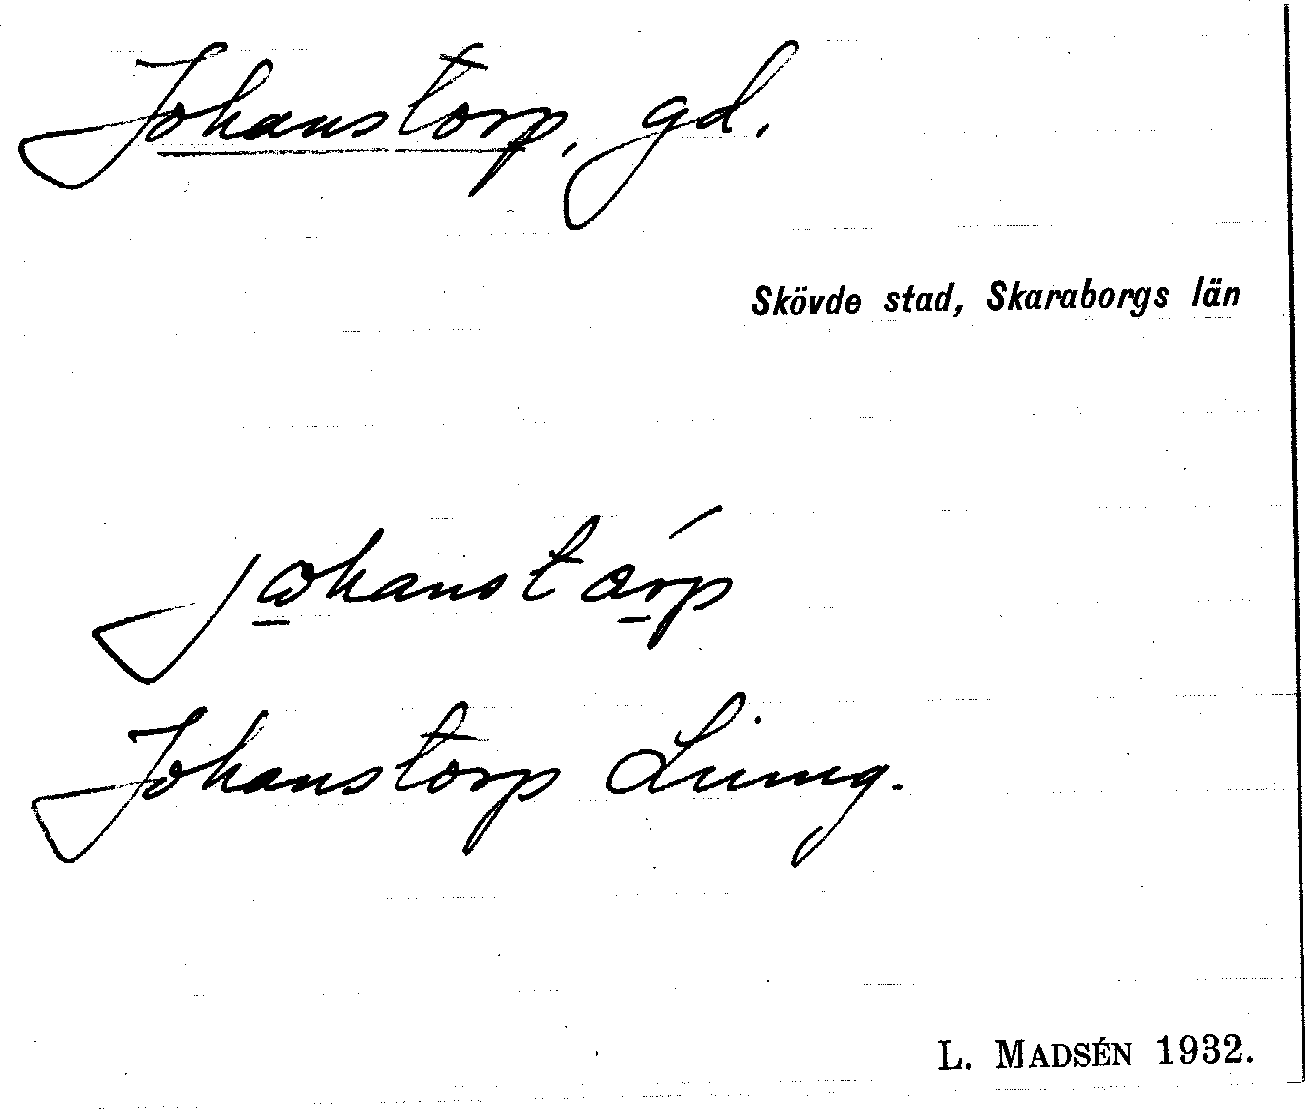 Johanstorp, gd.
Skövde stad, Skaraborgs län
Johanstorp
L. MADSÉN 1932.